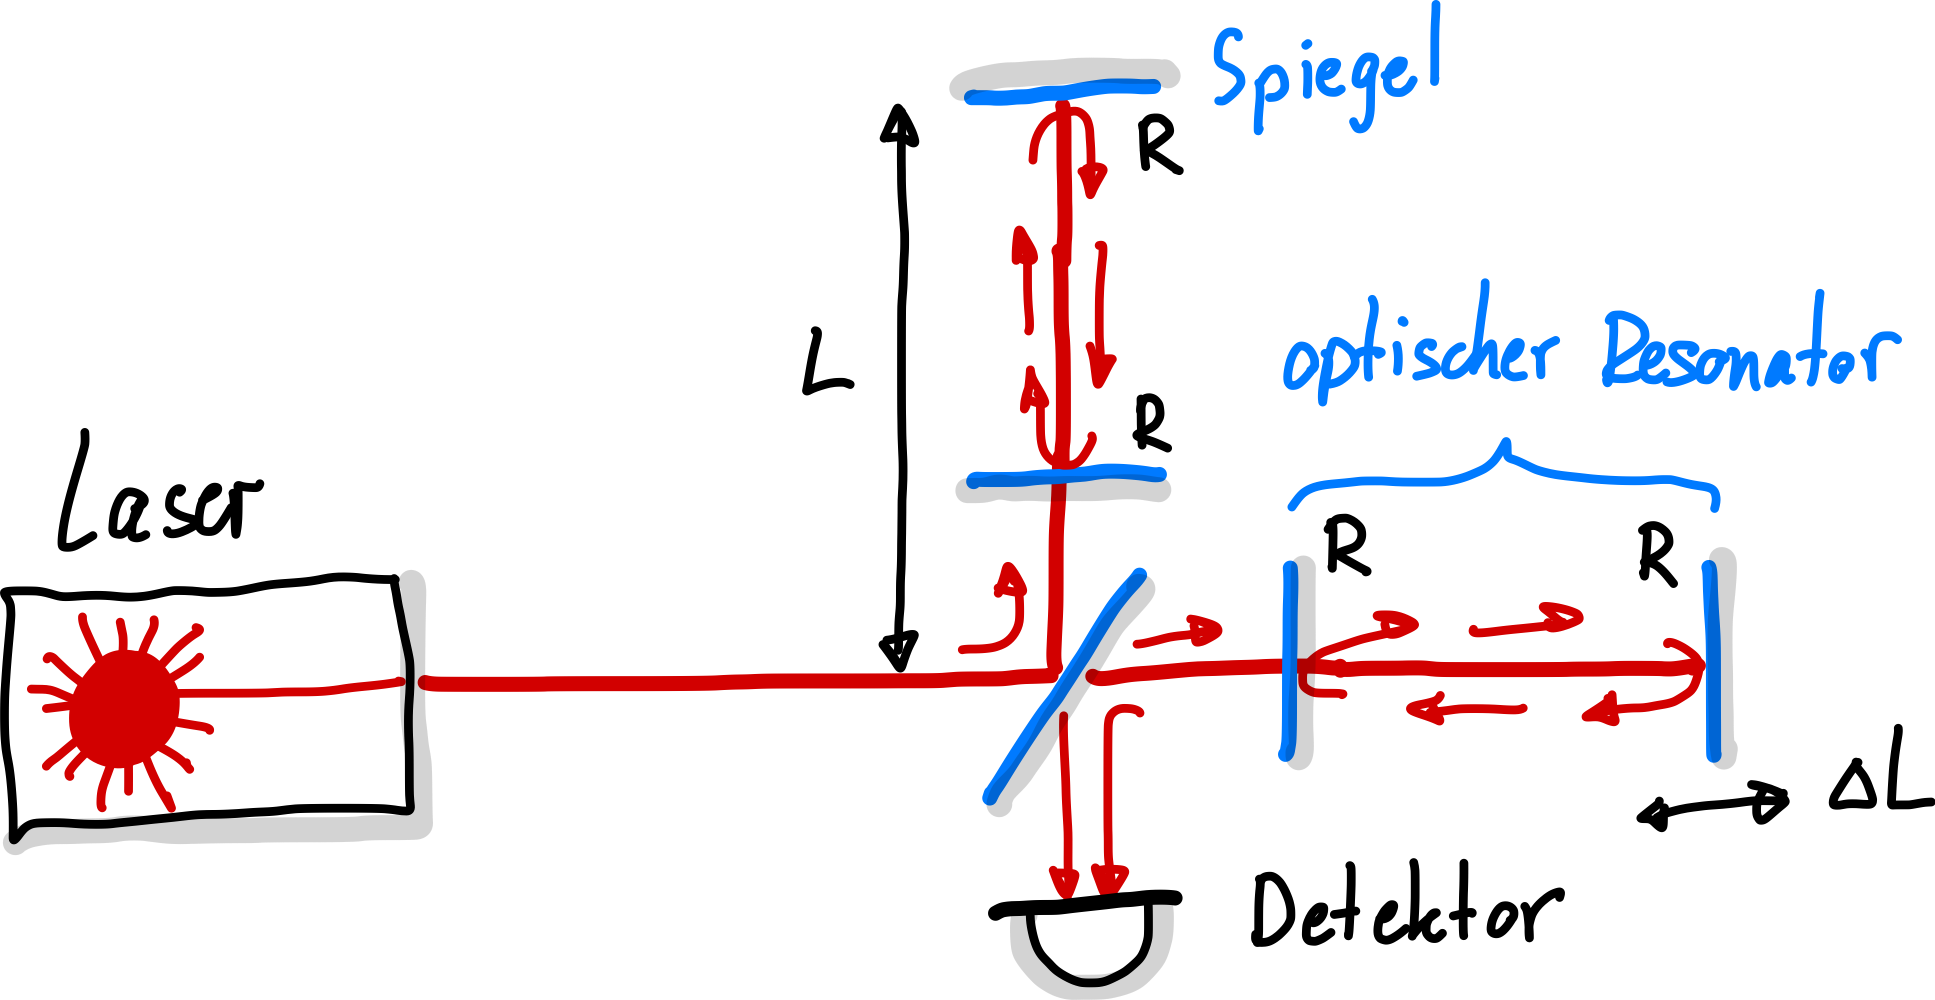 Spiegel
R
L
optischer Resonator
R
Laser
R
R
ΔL
Detektor